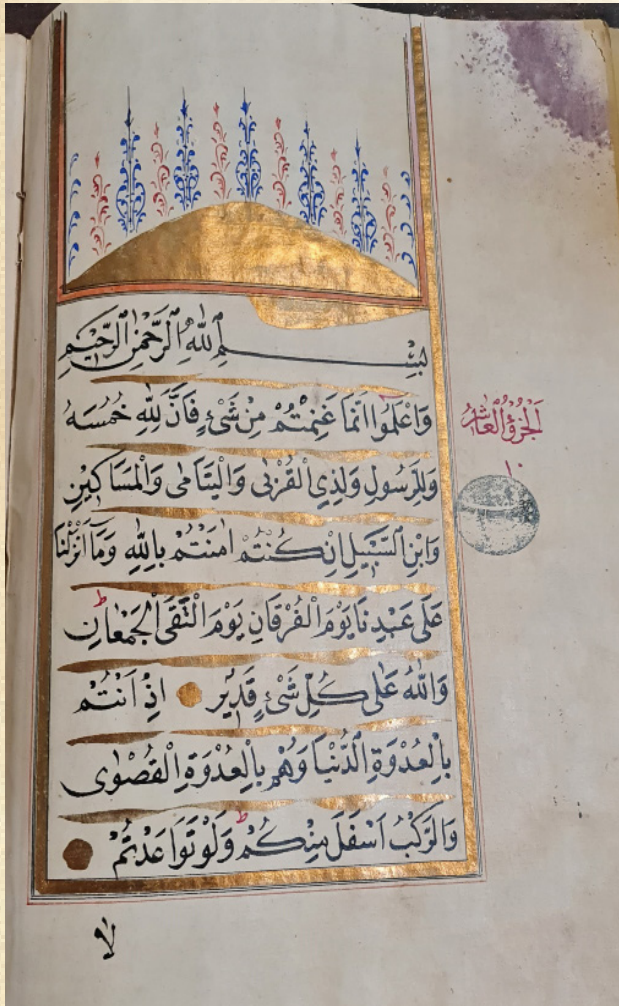 بِسْمِ اللّٰهِ الرَّحْمٰنِ الرَّحٖيمِ
وَاعْلَمُوا اَنَّمَا غَنِمْتُمْ مِنْ شَىْءٍ فَاَنَّ لِلّٰهِ خُمُسَهُ
وَلِلرَّسُولِ وَلِذِى الْقُرْبٰى وَالْيَتَامٰى وَالْمَسَاكٖينِ
وَابْنِ السَّبٖيلِ اِنْ كُنْتُمْ اٰمَنْتُمْ بِاللّٰهِ وَمَا اَنْزَلْنَا
عَلٰى عَبْدِنَا يَوْمَ الْفُرْقَانِ يَوْمَ الْتَقَى الْجَمْعَانِ ط
وَاللّٰهُ عَلٰى كُلِّ شَىْءٍ قَدٖيرٌ اِذْ اَنْتُمْ
بِالْعُدْوَةِ الدُّنْيَا وَهُمْ بِالْعُدْوَةِ الْقُصْوٰى
وَالرَّكْبُ اَسْفَلَ مِنْكُمْ ط وَلَوْ تَوَاعَدْتُمْ
لا
اَلْجُزْؤُ الْعَاشِرُ
١٠